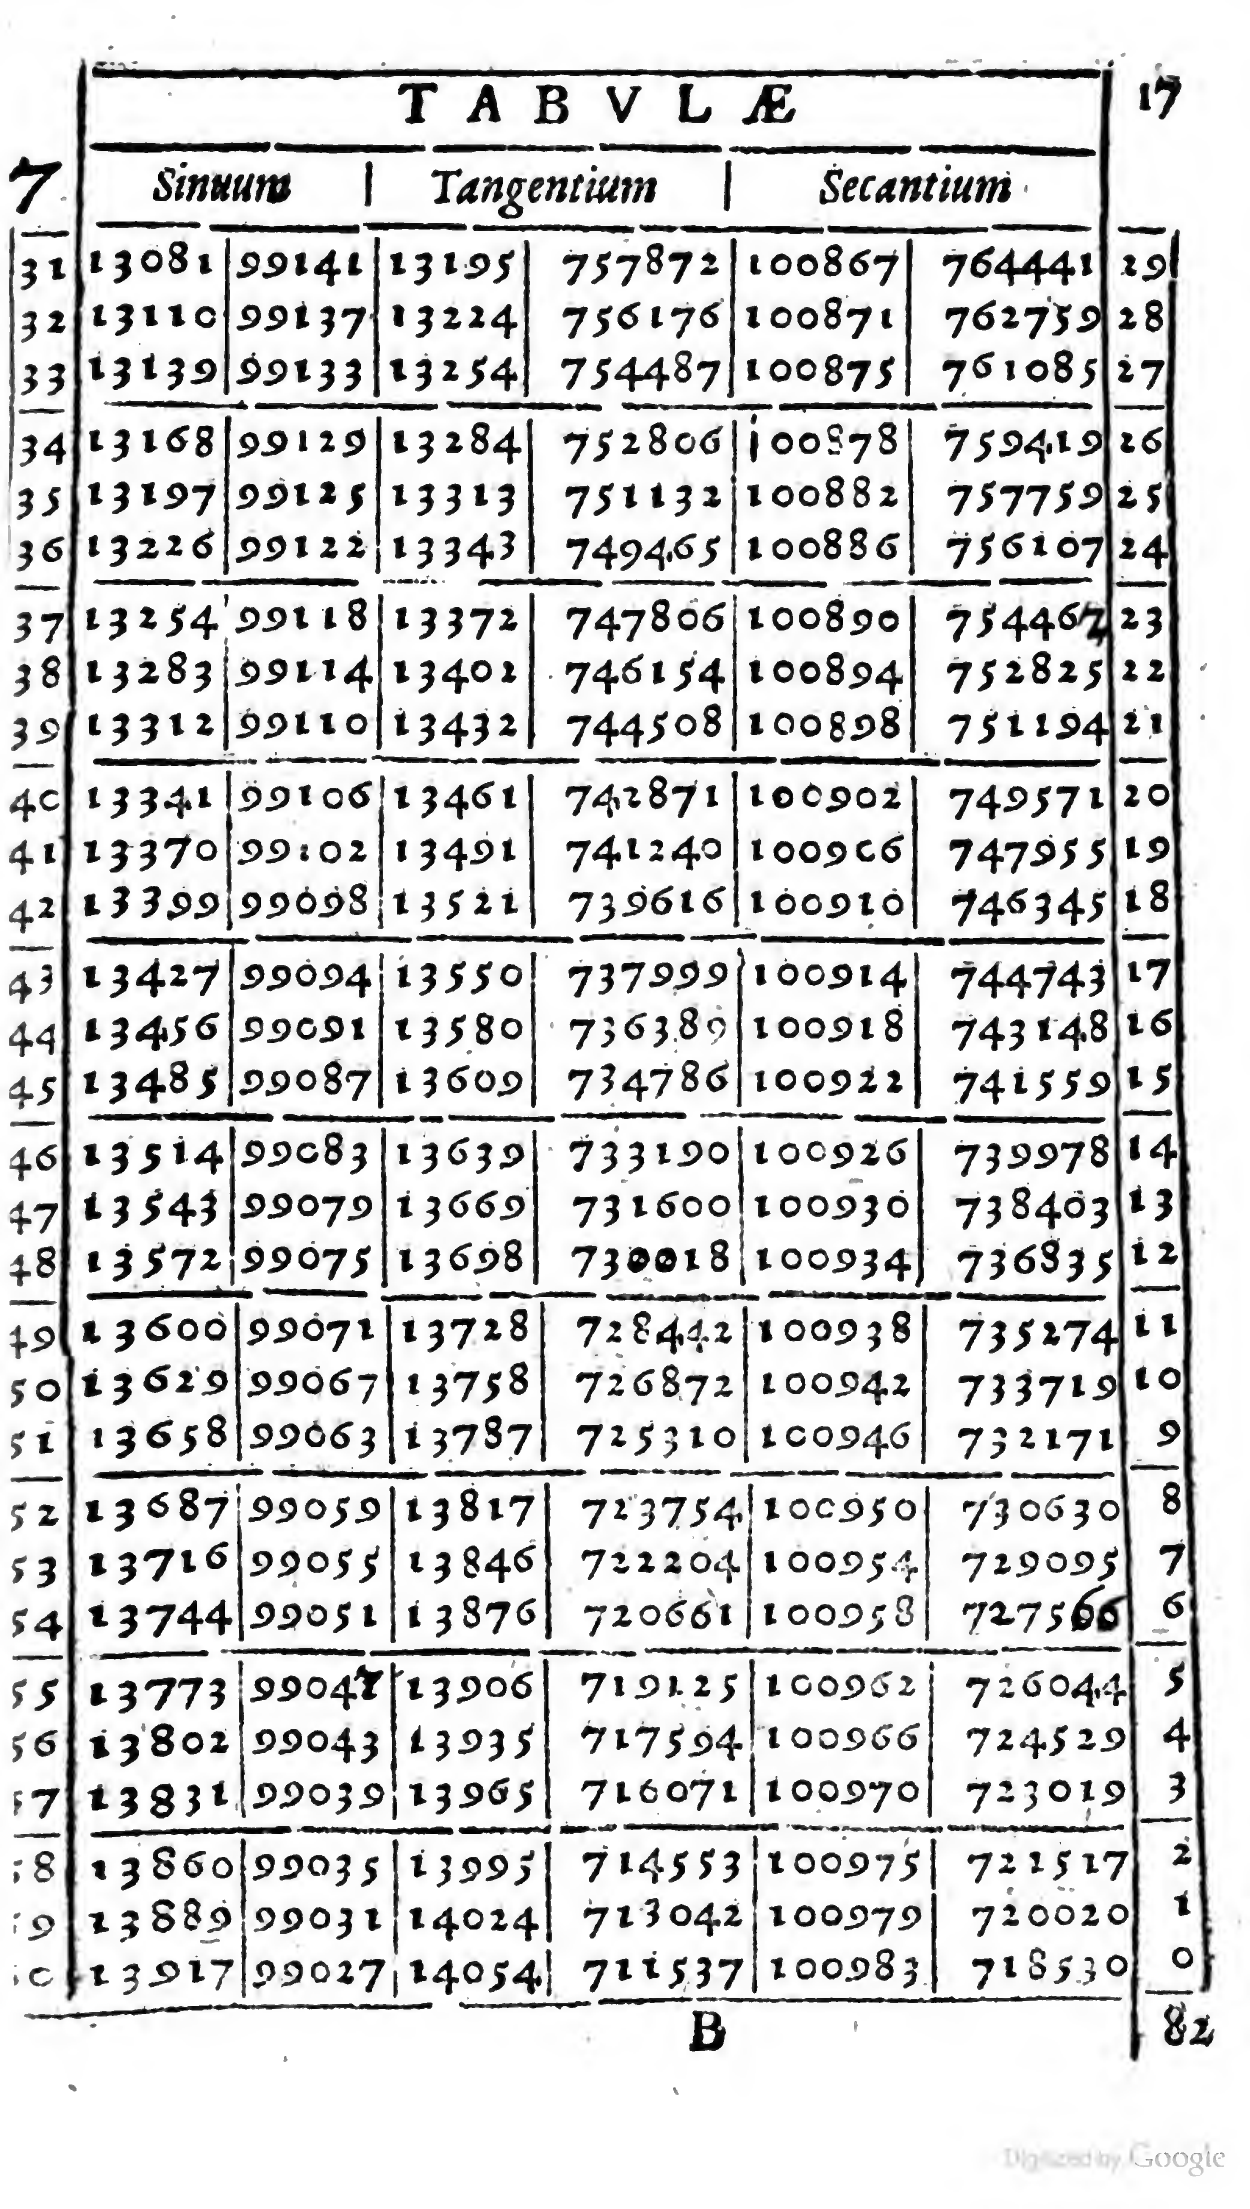 TABVLÆ 17
7 Sinuum | Tangentium | Secantium
31 13081 99141 13195 757872 100867 764441 29
32 13110 99137 13224 756176 100871 762759 28
33 13139 99133 13254 754487 100875 761085 27
34 13168 99129 13284 752806 100878 759419 26
35 13197 99125 13313 751132 100882 757759 25
36 13226 99122 13343 749465 100886 756107 24
37 13254 99118 13372 747806 100890 23
38 13283 99114 13402 746154 100894 752825 22
39 13312 99110 13432 744508 100898 751194 21
40 13341 99106 13461 742871 100902 749571 20
41 13370 99102 13491 741240 100906 747955 19
42 13399 99098 13521 739616 100910 746345 18
43 13427 99094 13550 737999 100914 744743 17
44 13456 99091 13580 736389 100918 743148 16
45 13485 99087 13609 734786 100922 741559 15
46 13514 99083 13639 733190 100926 739978 14
47 13543 99079 13669 731600 100930 738403 13
48 13572 99075 13698 730018 100934 736835 12
49 13600 99071 13728 728442 100938 735274 11
50 13629 99067 13758 726872 100942 733719 10
51 13658 99063 13787 725310 100946 732171 9
52 13687 99059 13817 723754 100950 730630 8
53 13716 99055 13846 722204 100954 729095 7
54 13744 99051 13876 720661 100958 727566 6
55 13773 99047 13906 719125 100962 726044 5
56 13802 99043 13935 717594 100966 724529 4
57 13831 99039 13965 716071 100970 723019 3
58 13860 99035 13995 714553 100975 721517 2
59 13889 99031 14024 713042 100979 720020 1
13917 99027 14054 711537 100983 718530 0
B 82
Digitized by Google